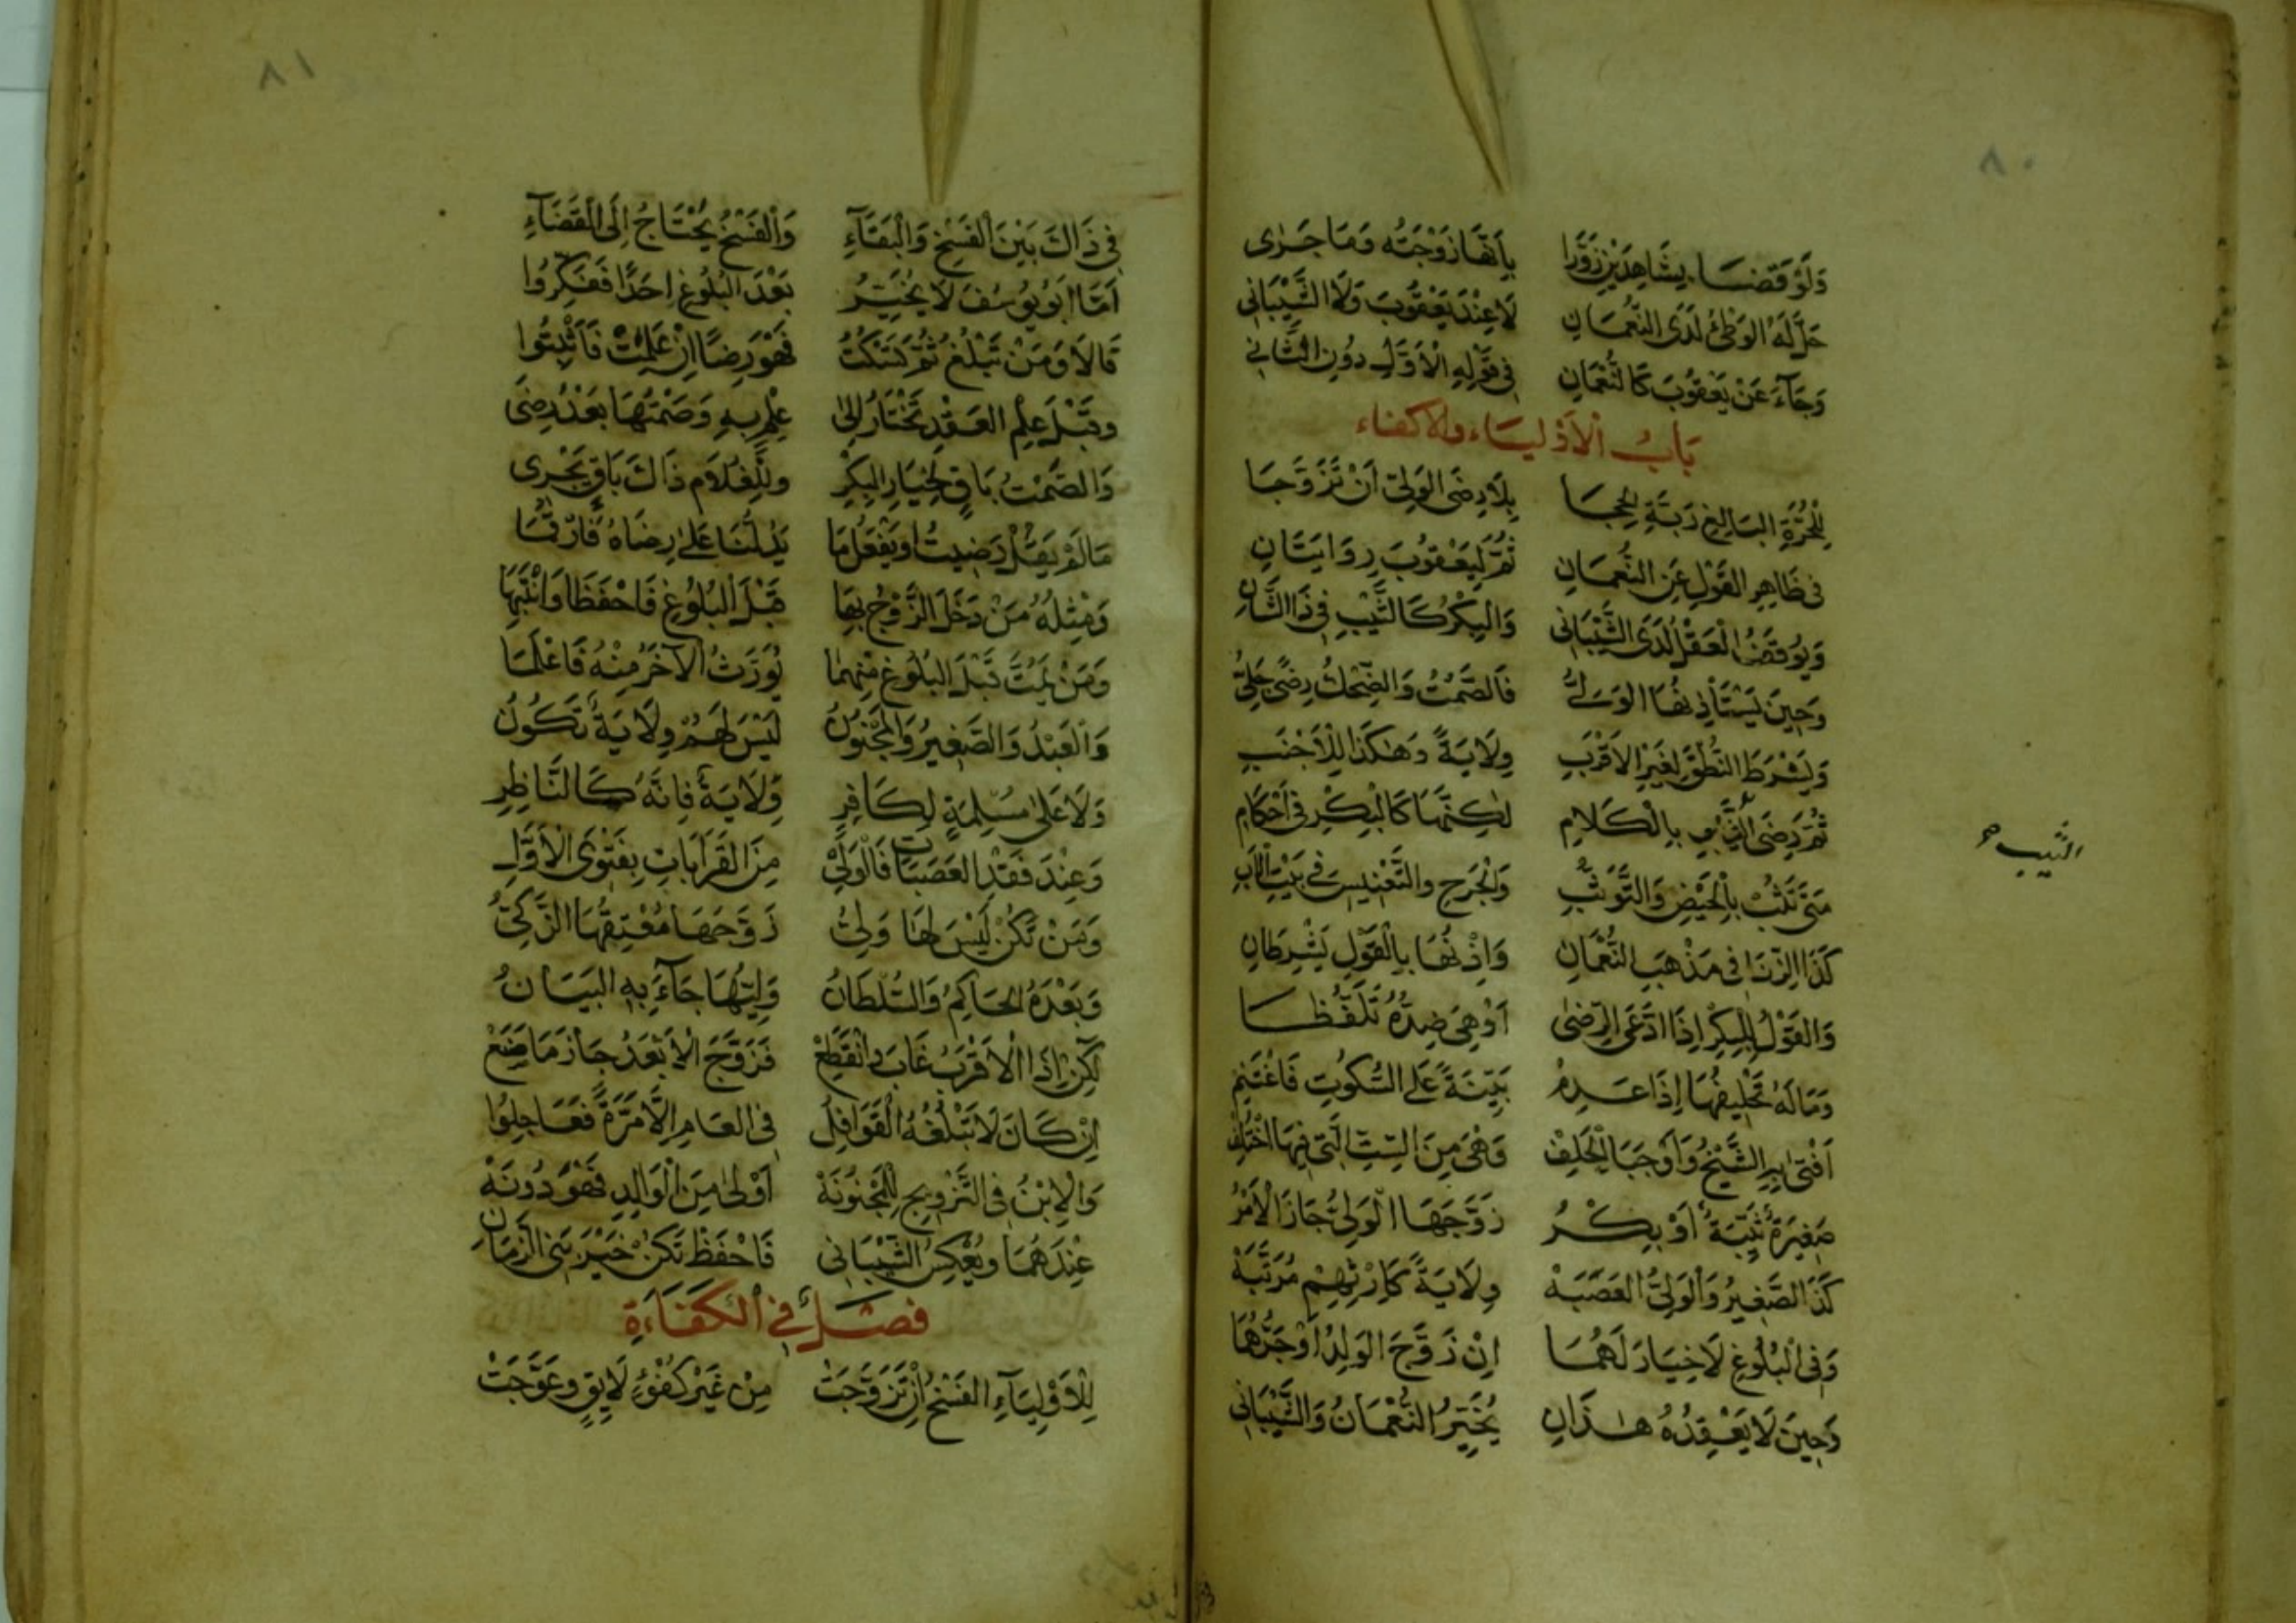 ٨٠
وَلَوْ قَضَى بِشَاهِدَيْنِ زَوَّرَا بِأَنَّهَا زَوْجَتُه وَمَا جَرٰى
حَلَّ لَهُ الوَطْئُ لَدَى النُّعْمَانِ لَا عِنْدَ يَعْقُوبَ وَلَا الشَّيْبَانِى
وَجَآءَ عَنْ يَعْقُوبَ كَالنُّعْمَانِ فِى قَوْلِهِ الْأَوَّلِ دُونَ الثَّانِي
بَابُ الْأَوْلِيَاء والاكفاء
لِلْحُرَّةِ البَالِغِ رَبَّةِ الْحِجَا بِلَا رِضَى الوَلِىِّ أَنْ تَزَوَّجَا
فى ظَاهِرِ القَوْلِ عَنِ النُّعْمَانِ ثُمَّ لِيَعْقُوبَ رِوَايَتَانِ
وَيُوقَفُ الْعَقْدُ لَدَى الشَّيْبَانِى وَالبِكْرُ كَالثَّيِّبِ فِى ذَا الشَّانِ
وَحِينَ يَسْتَأْذِنُهَا الوَلِيُّ فَالصَّمْتُ وَالضِّحْكُ رِضًى جَلِيُّ
وَيُشْرَطُ النُّطْقُ لِغَيْرِ الاَقْرَبِ وِلَايَةً وَهٰكَذَا لِلْأَجْنَبِ
ثُمَّ رِضَى الثَّيِّبِ بِالْكَلَامِ لٰكِنَّهَا كَالْبِكْرِ فى أَحْكَامِ
الثَّيِّب صح
مَتَى تَثِبْ بِالْحَيْضِ وَالتَّوَثُّبِ وَالْجَرْحِ والتَّعْنِيسِ فى بَيْتِ الْأَبِ
كَذَا الزِّنَا فى مَذْهَبِ النُّعْمَانِ وَإِذْنُهَا بِالْقَوْلِ يَشْرِطَانِ
وَالقَوْلُ لِلْبِكْرِ إِذَا ادَّعَى الرِّضٰى أَوْ هِىَ ضِدَّهُ تَلَفُّظَا
وَمَا لَهُ تَحْلِيفُهَا إِذَا عَدِمْ بَيِّنَةً عَلَى السُّكُوتِ فَاغْتَنِمْ
أَفْتٰى بِهِ الشَّيْخُ وَأَوْجَبَا الْحَلِفْ وَهْىَ مِنَ السِّتِّ الَّتِى فِيهَا اخْتُلِفْ
صَغِيرَةٌ ثَيِّبَةٌ أَوْ بِكْرُ زَوَّجَهَا الْوَلِىُّ جَازَ الْأَمْرُ
كَذَا الصَّغِيرُ وَالْوَلِىُّ العَصَبَهْ وِلَايَةً كَإِرْثِهِمْ مُرَتَّبَهْ
وَفِى الْبُلُوغِ لَا خِيَارَ لَهُمَا إِنْ زَوَّجَ الوَالِدُ أَوْ جَدُّهُمَا
وَحِينَ لَا يَعْقِدُهُ هٰذَانِ يُخَيِّرُ النُّعْمَانُ وَالشَّيْبَانِى
٨١
فِى ذَاكَ بَيْنَ الْفَسْخِ وَالْبَقَآءِ وَالْفَسْخُ يُحْتَاجُ إِلَى الْقَضَآءِ
أَمَّا أَبُو يُوسُفَ لَا يُخَيِّرُ بَعْدَ الْبُلُوغِ احَدًا فَفَكِّرُوا
قَالَا وَمَنْ تَبْلُغْ ثُمَّ تَسْكُتُ فَهْوَ رِضًا إِنْ عَلِمَتْ فَأَثْبِتُوا
وقَبْلَ عِلْمِ العَقْدِ تَخْتَارُ إِلىٰ عِلْمٍ بِهِ وَصَمْتُهَا بَعْدُ رِضَى
وَالصَّمْتُ بَاقٍ لِخِيَارِ البِكْرِ ولِلْغُلَامِ ذَاكَ بَاقٍ يَجْرِى
مَا لَمْ يَقُلْ رَضِيتُ أو يَفْعَلْ مَا يَدُلُّنَا عَلَى رِضَاهُ
وَمِثْلُهُ مَنْ دَخَلَ الزَّوْجُ بِهَا قَبْلَ الْبُلُوغِ فَاحْفَظَا وَانْتَبِهَا
وَمَنْ يَمُتْ قَبْلَ البُلُوغِ مِنْهُمَا يُوَرَّثُ الآخَرُ مِنْهُ فَاعْلَمَا
وَالْعَبْدُ وَالصَّغِيرُ وَالمَجْنُونُ لَيْسَ لَهُمْ وِلَايَةٌ تَكُونُ
وَلَا عَلىٰ مُسْلِمَةٍ لِكَافِرٍ وِلَايَةٌ فَإِنَّهُ كَالنَّاظِرِ
وَعِنْدَ فَقْدِ العَصَبَاتِ فَالْوَلِي مِنَ القَرَابَاتِ بِفَتْوَى الأَوَّلِ
وَمَنْ تَكُنْ لَيْسَ لَهَا وَلِىُّ زَوَّجَهَا مُعْتِقُهَا الزَّكِىُّ
وَبَعْدَهُ الحَاكِمُ وَالسُّلْطَانُ وَلِيُّهَا جَآءَ بِهِ البَيَانُ
لٰكِنْ إِذَا الْأَقْرَبُ غَابَ وانْقَطَعْ فَزَوَّجَ الْأَبْعَدُ جَازَ مَا صَنَعْ
إِنْ كَانَ لَا تَبْلُغُهُ القَوَافِلُ فِى العَامِ إِلَّا مَرَّةً فَعَاجِلُوا
وَالاِبْنُ فى التَّزْوِيجِ لِلْمَجْنُونَهْ أَوْلىٰ مِنَ الْوَالِدِ فَهْوَ دُونَهْ
عِنْدَهُمَا ويُعْكِسُ الشَّيْبَانِى فَاحْفَظْ تَكُنْ خَيْرَ بَنِى الزَّمَانِ
فَصْلٌ فِي الْكَفَاءَةِ
لِلْأَوْلِيَآءِ الفَسْخُ إِنْ تَزَوَّجَتْ مِنْ غَيْرِ كُفْؤٍ لَايِقٍ وعَوَّجَتْ